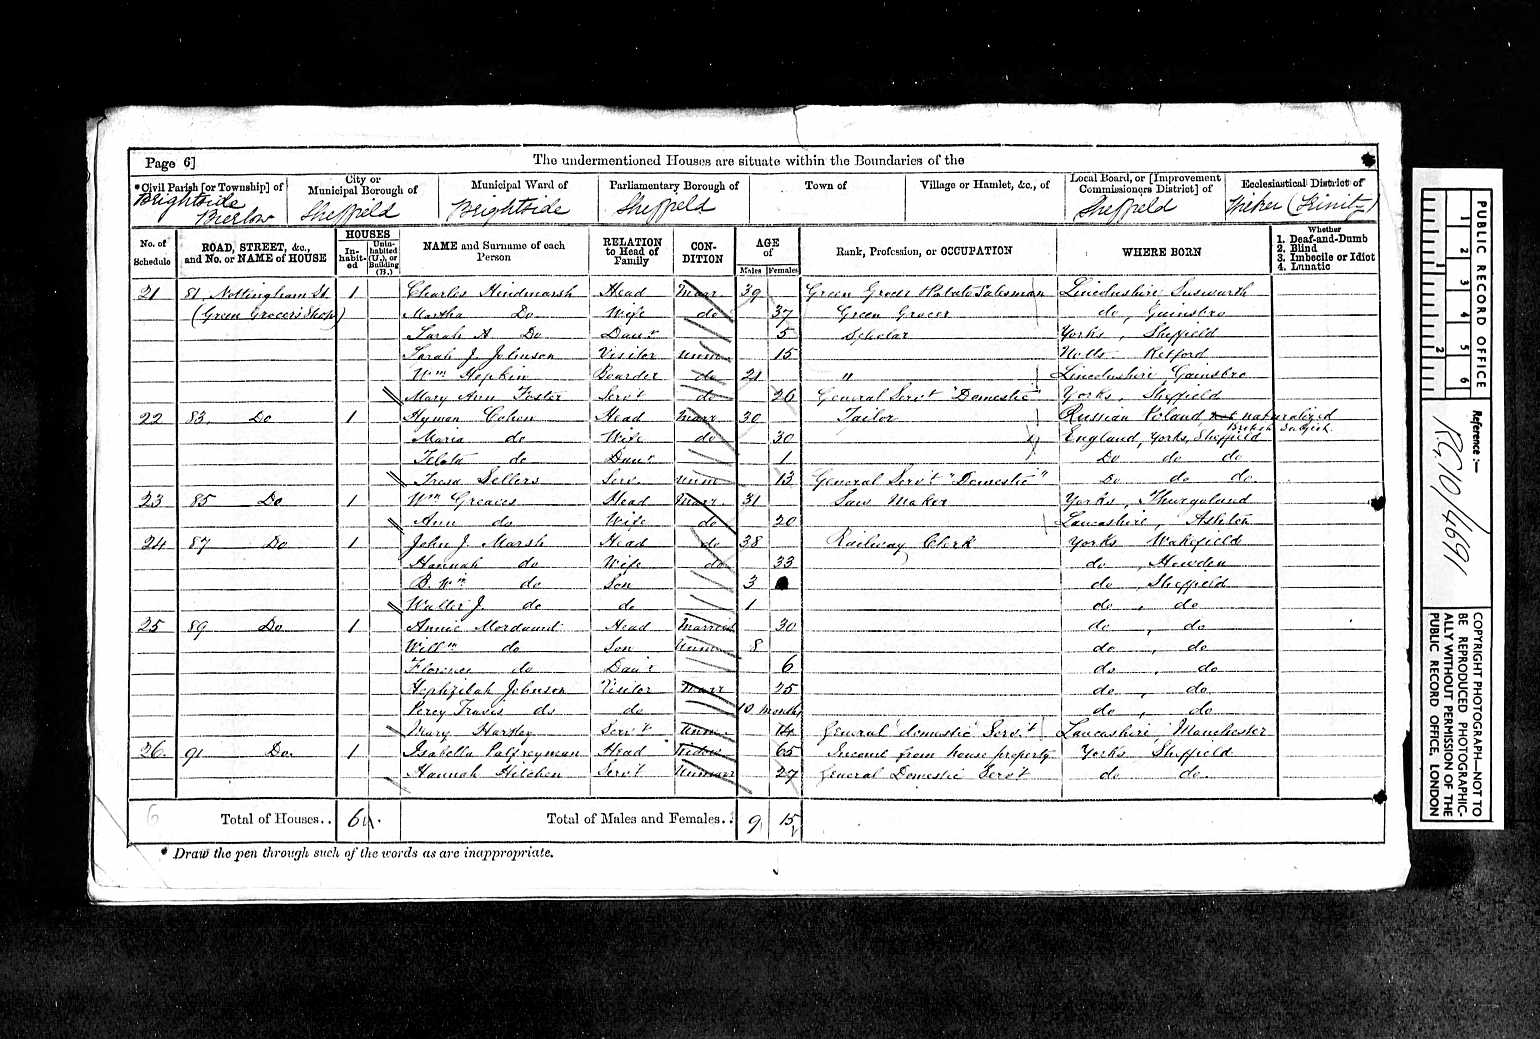 Page 6]
The undermentioned Houses are situate within the Boundaries of the
*Civil Parish [or Township] of
Brightside Bierlow
City or Municipal Borough of
Sheffield
Municipal Ward of
Brightside
Parliamentary Borough of
Sheffield
Town of
Village or Hamlet, &c., of
Local Board, or [Improvement Commissioners District] of
Sheffield
Ecclesiastical District of
Wicker (Trinity)
No. of Schedule
ROAD, STREET, &c., and No. or NAME of HOUSE
HOUSES
In-habit-ed
Unin-habited (U.), or Building (B.)
NAME and Surname of each Person
RELATION to Head of Family
CON-DITION
AGE of
Males
Females
Rank, Profession, or OCCUPATION
WHERE BORN
Whether
1. Deaf-and-Dumb
2. Blind
3. Imbecile or Idiot
4. Lunatic
21 81, Nottingham St. 1 Charles Hindmarsh Head Marr 39 Green Grocer & Potato Salesman Lincolnshire, Susworth
(Green Grocer's Shop) Martha Do Wife do 37 Green Grocer do, Gainsbro
Sarah A Do Daur 5 Scholar Yorks, Sheffield
Sarah J. Johnson Visitor Unm 15 Notts Retford
Wm Hopkin Boarder do 21 " Lincolnshire, Gainsbro
Mary Ann Foster Servt do 26 General Servt "Domestic" Yorks, Sheffield
22 83, Do 1 Hyman Cohen Head Marr 30 Tailor Russian Poland, not naturalized British Subject
Maria do Wife do 30 England, Yorks, Sheffield
do Daur 1 Do do do
Tresa Sellers Serv Unm 13 General Servt "Domestic" Do do do
23 85 Do 1 Wm Greaves Head Marr 31 Saw Maker Yorks, Thurgoland
Ann do Wife do 20 Lancashire, Ashton
24 87 Do 1 John J. Marsh Head do 38 Railway Clerk Yorks Wakefield
Hannah do Wife do 33 do, Howden
B. Wm do Son 3 do, Sheffield
Walter J. do do 1 do, do
25 89 Do 1 Annie Mordaunt Head Married 30 do, do
Willm do Son Unm 8 do, do
Florence do Daur 6 do, do
Hephzibah Johnson Visitor Marr 25 do, do
Percy Travis do do 10 months do, do
Mary Hartley Servt Unm 14 General "domestic" Servt Lancashire, Manchester
26 91 Do. 1 Isabella Palfreyman Head Widow 65 Income from house property Yorks Sheffield
Hannah Hitchen Servt Unmarr 27 General Domestic Servt do do
6 Total of Houses.. 6 Total of Males and Females.. 9 15
* Draw the pen through such of the words as are inappropriate.
PUBLIC RECORD OFFICE
1 2 3 4 5 6
1 2
Reference:-
RG10/4691
COPYRIGHT PHOTOGRAPH—NOT TO
BE REPRODUCED PHOTOGRAPHIC-
ALLY WITHOUT PERMISSION OF THE
PUBLIC RECORD OFFICE, LONDON